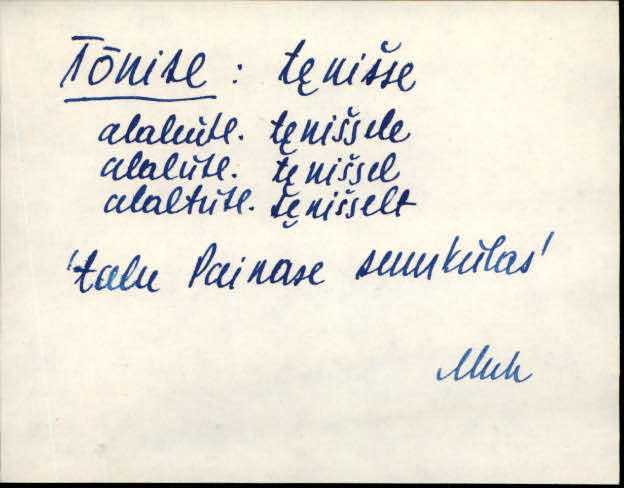 Tõnise : tęnišše
alaleütl. tęniššele
alalütl. tęniššel
alaltütl. tęniššelt
'talu Painase suurkülas'
Muh